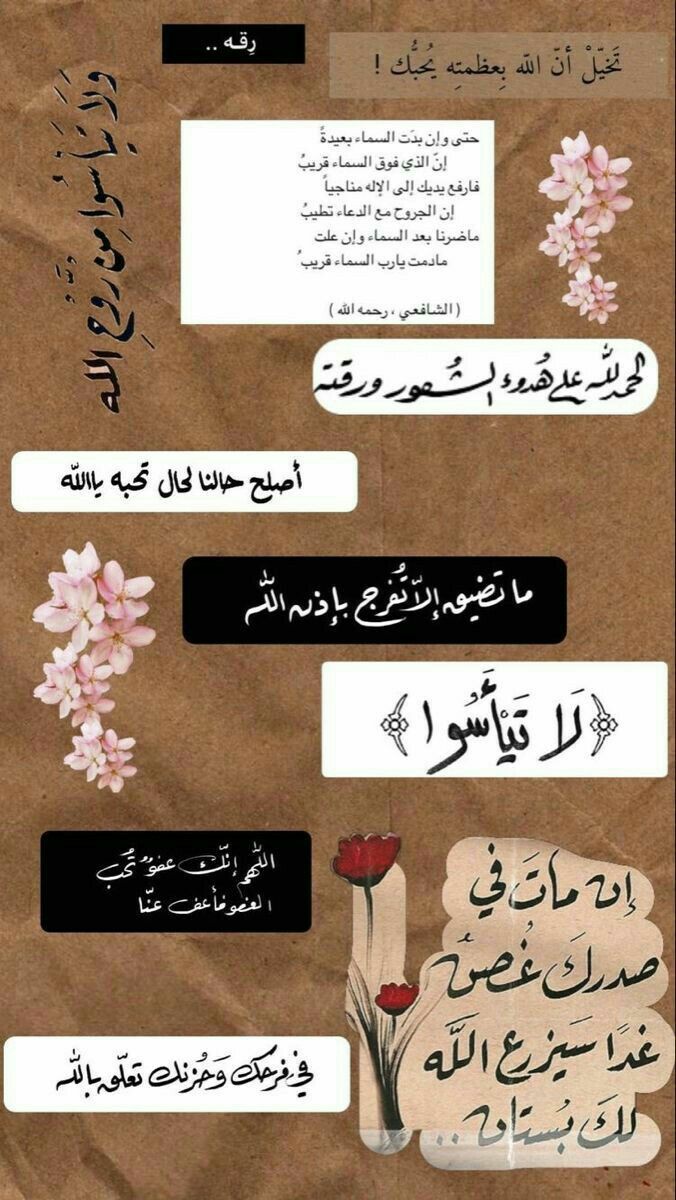 رِقـه ..
تَخيّلْ أنّ الله بِعظمتِه يُحبُّك !
وَلَا تَيْأَسُوا مِن رَّوْحِ اللَّه
حتى وإن بدَت السماء بعيدةً
إنّ الذي فوق السماء قريبُ
فارفع يديك إلى الإله مناجياً
إن الجروح مع الدعاء تطيبُ
ماضرنا بعد السماء وإن علت
مادمت يارب السماء قريبُ
( الشافعي ، رحمه الله )
الحمدلله على هُدوء الشُعور ورقته
أصلح حالنا لحال تحبه ياالله
ما تضيق إلاّ تُفرج بإذن الله
﴿لَا تَيْأَسُوا﴾
اللهم إنّك عفوٌ تُحب
العفو فأعف عنّا
إن ماتَ في
صدركَ غُصنٌ
غدًا سَيزرع اللَّه
لكَ بُستان ..
في فرحك وَحُزنك تعلّق بالله